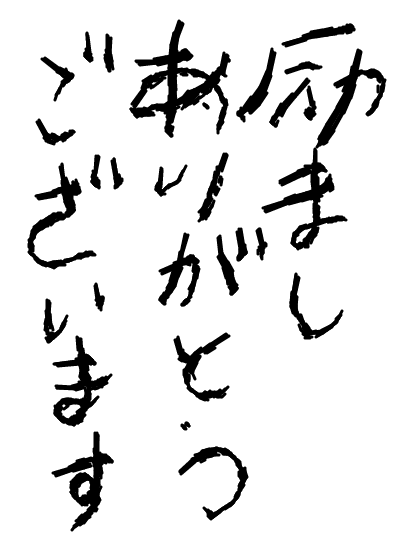 励まし
ありがとう
ございます